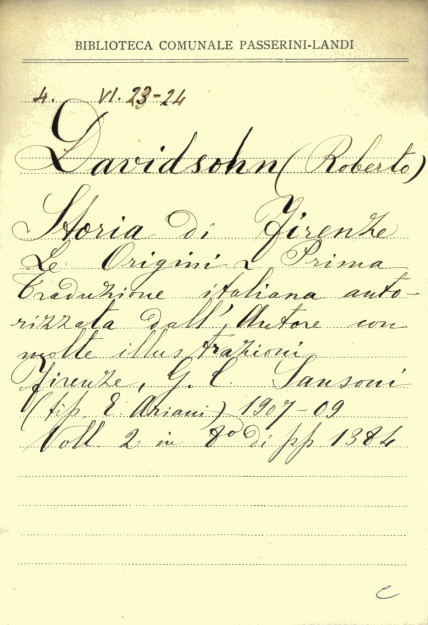 BIBLIOTECA COMUNALE PASSERINI-LANDI
4. VI. 23-24
Davidsohn (Roberto)
Storia di Firenze
Le Origini - Prima
traduzione italiana auto-
rizzata dall'Autore con
molte illustrazioni
Firenze, G. C. Sansoni
(tip. E. Ariani) 1907-09
Voll. 2 in 8º di pp 1384
C